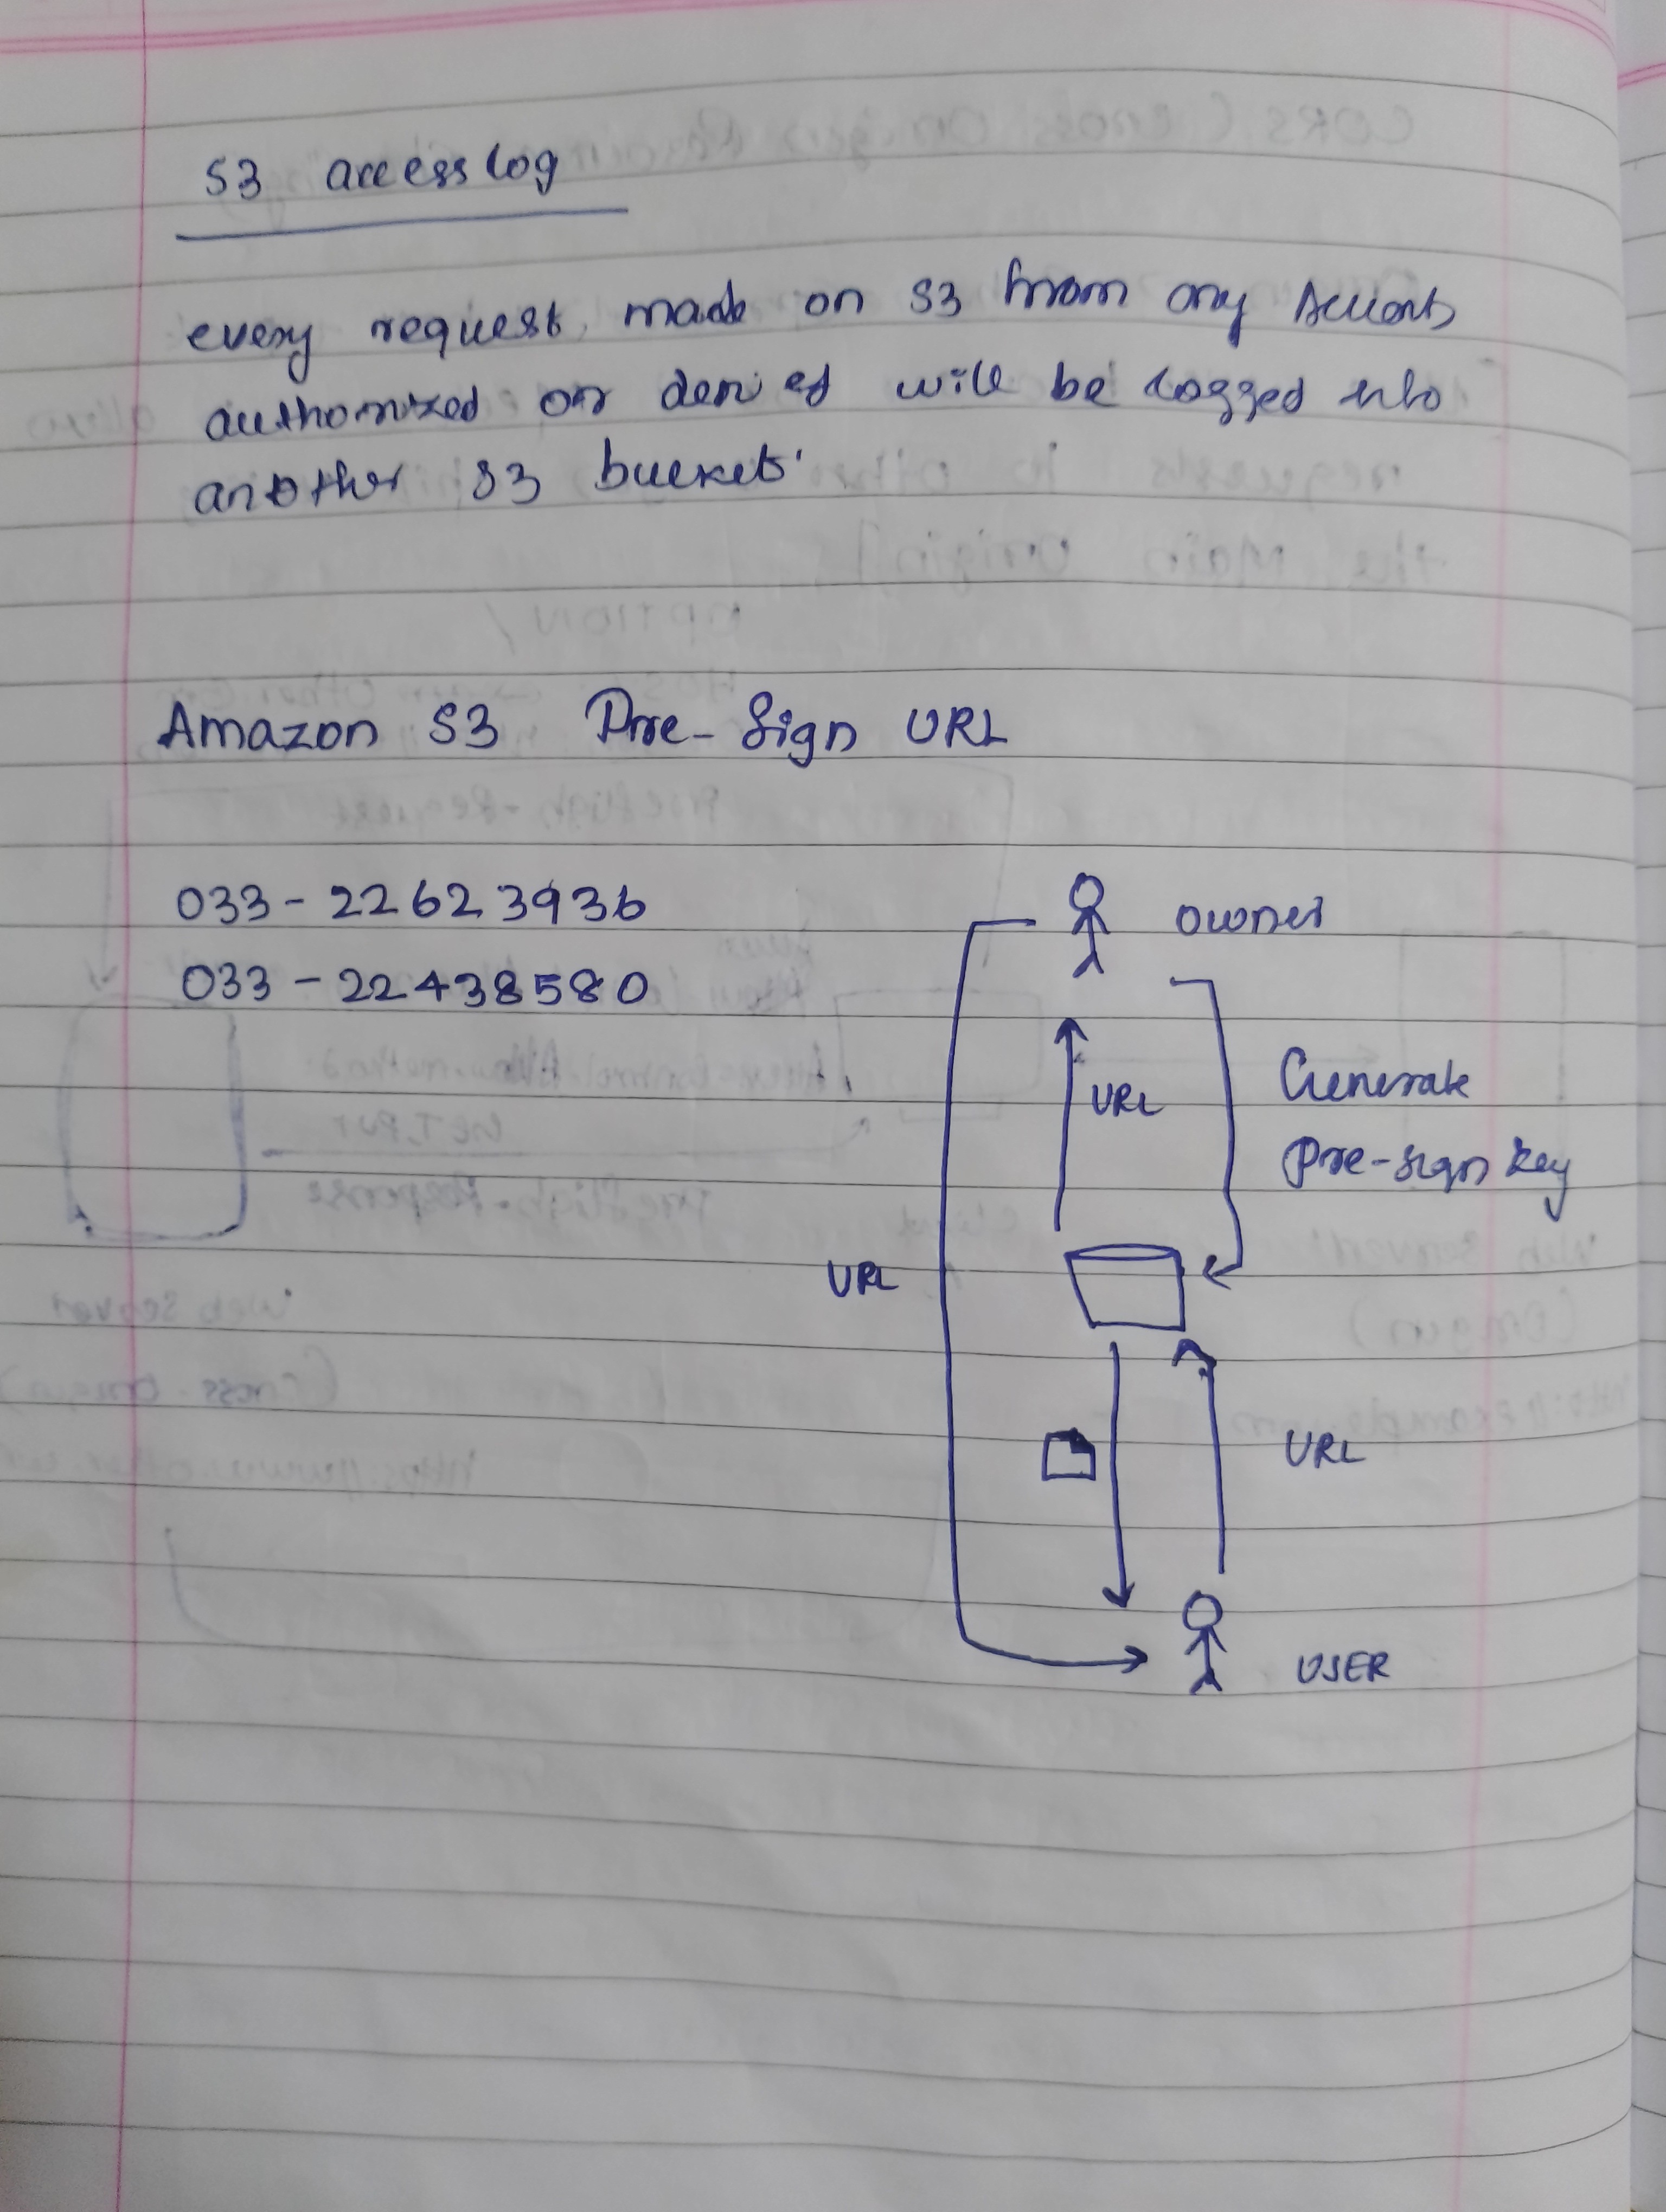 S3 access log
every request made on S3 from any Account
authorized or denied will be logged into
another S3 bucket.
Amazon S3 Pre-Sign URL
033-22623936
033-22438580
owner
URL
Generate
Pre-sign key
URL
URL
USER